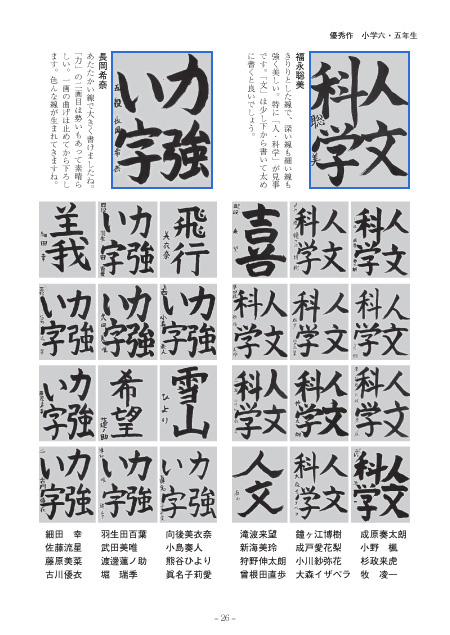 優秀作　小学六・五年生
福永聡美
きりりとした線で、深い線も細い線も
強く美しい。特に「人・科学」が見事
です。「文」は少し下から書いて太め
に書くと良いでしょう。
人文
科学
聡美
長岡希奈
あたたかい線で大きく書けましたね。
「力」の二画目は勢いもあって素晴ら
しい。一画の曲げは止めてから下ろし
ます。色んな線が生まれてきますね。
力強
い字
人文
科学
人文
科学
喜
人文
科学
人文
科学
人文
科学
人文
科学
人文
科学
人文
科学
人文
科学
人文
科学
人文
飛行
美衣奈
力強
い字
羊我
細田幸
力強
い字
力強
い字
力強
い字
雪山
ひより
希望
蓮ノ助
力強
い字
力強
い字
力強
い字
力強
い字
成原奏太朗
小野　楓
杉政来虎
牧　凌一
鐘ヶ江博樹
成戸愛花梨
小川紗弥花
大森イザベラ
滝波来望
新海美玲
狩野伸太朗
曽根田直歩
向後美衣奈
小島奏人
熊谷ひより
眞名子莉愛
羽生田百葉
武田美唯
渡邊蓮ノ助
堀　瑞季
細田　幸
佐藤流星
藤原美菜
古川優衣
– 26 –